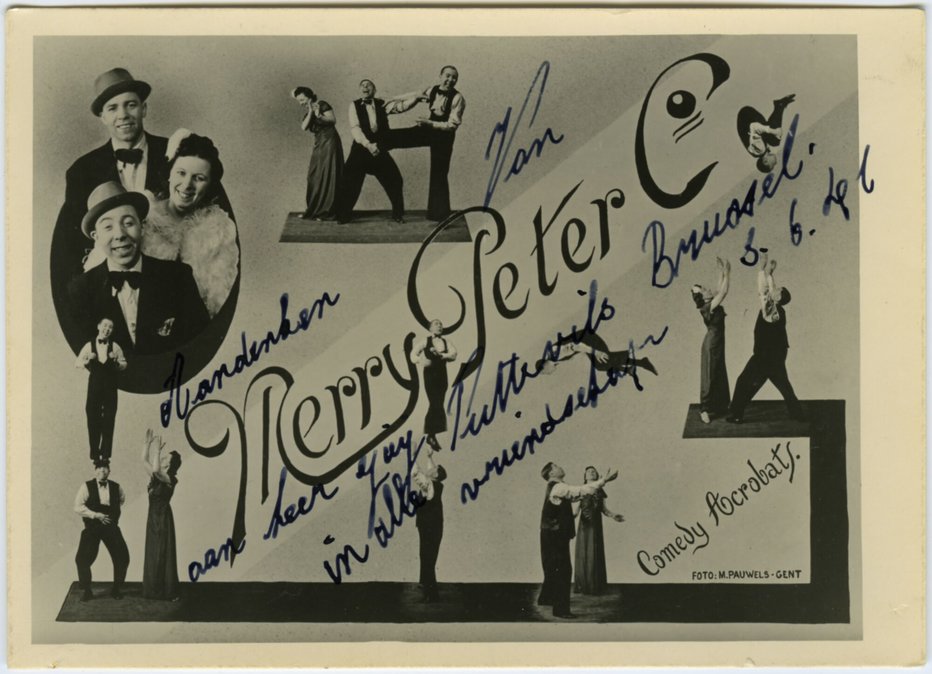 Merry Peter Co
Van
Brussel.
3. 6. 46
Aandenken
aan heer Guy Puttevils
in alle vriendschap
Comedy Acrobats.
FOTO: M. PAUWELS - GENT